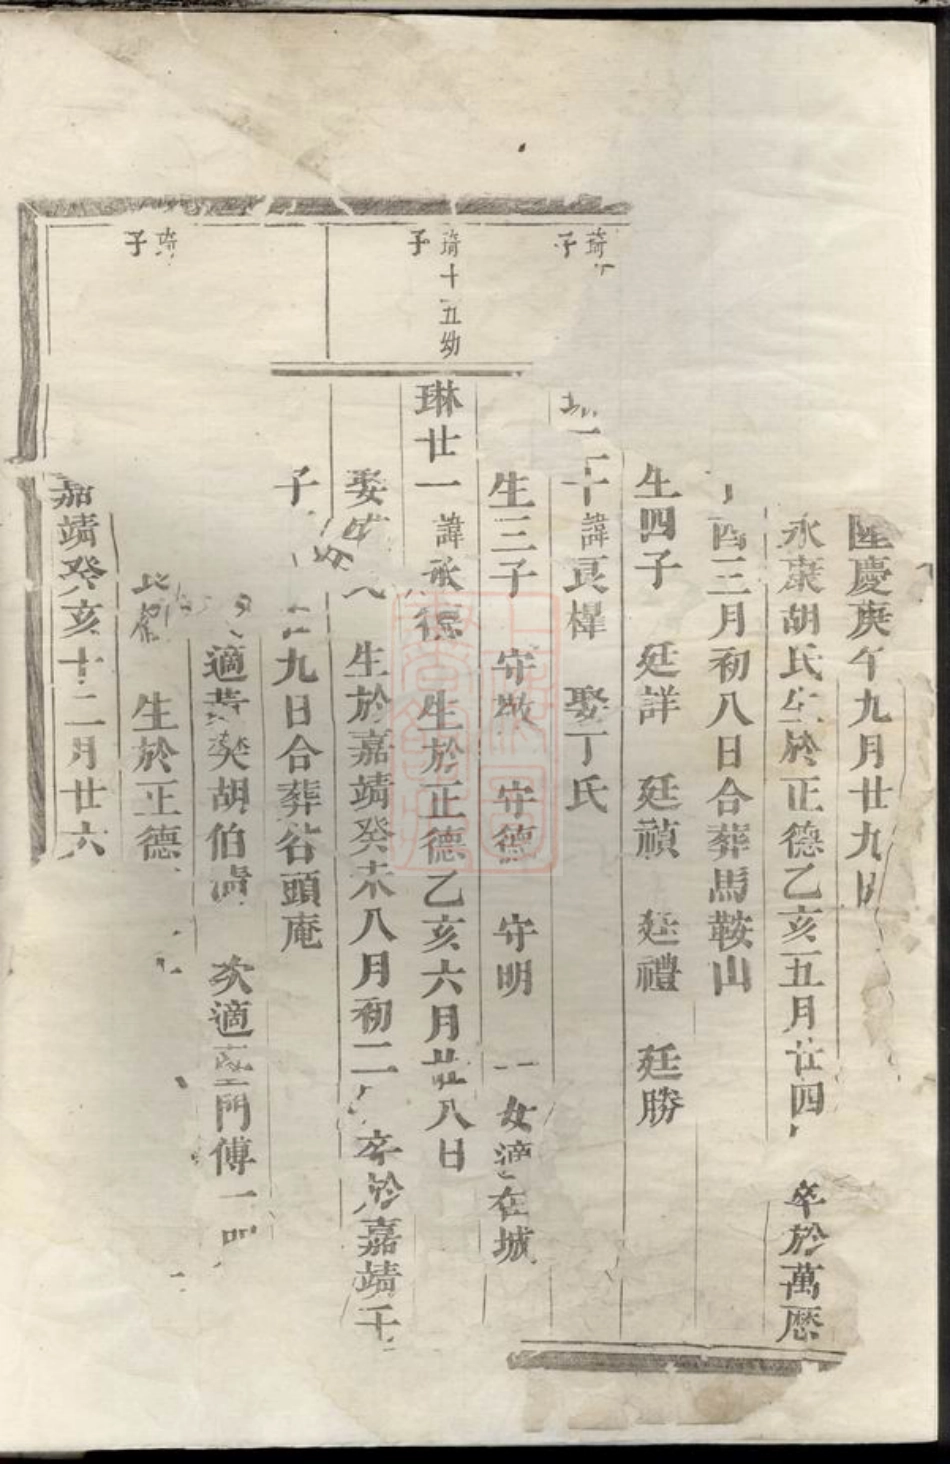 隆慶庚午九月廿九日
永康胡氏生於正德乙亥五月廿四 卒於萬厯
酉三月初八日合葬馬鞍山
生四子 廷詳 廷禎 廷禮 廷勝
琦
子
十諱良檡 娶丁氏
生三子 守敬 守德 守明 一女適在城
琦十五幼
子
琳廿一諱承德 生於正德乙亥六月廿八日
娶 生於嘉靖癸未八月初二 卒於嘉靖壬
子 九日合葬谷頭庵
適黃 胡伯清 次適 門傅一
琦
子
生於正德
嘉靖癸亥十二月廿六